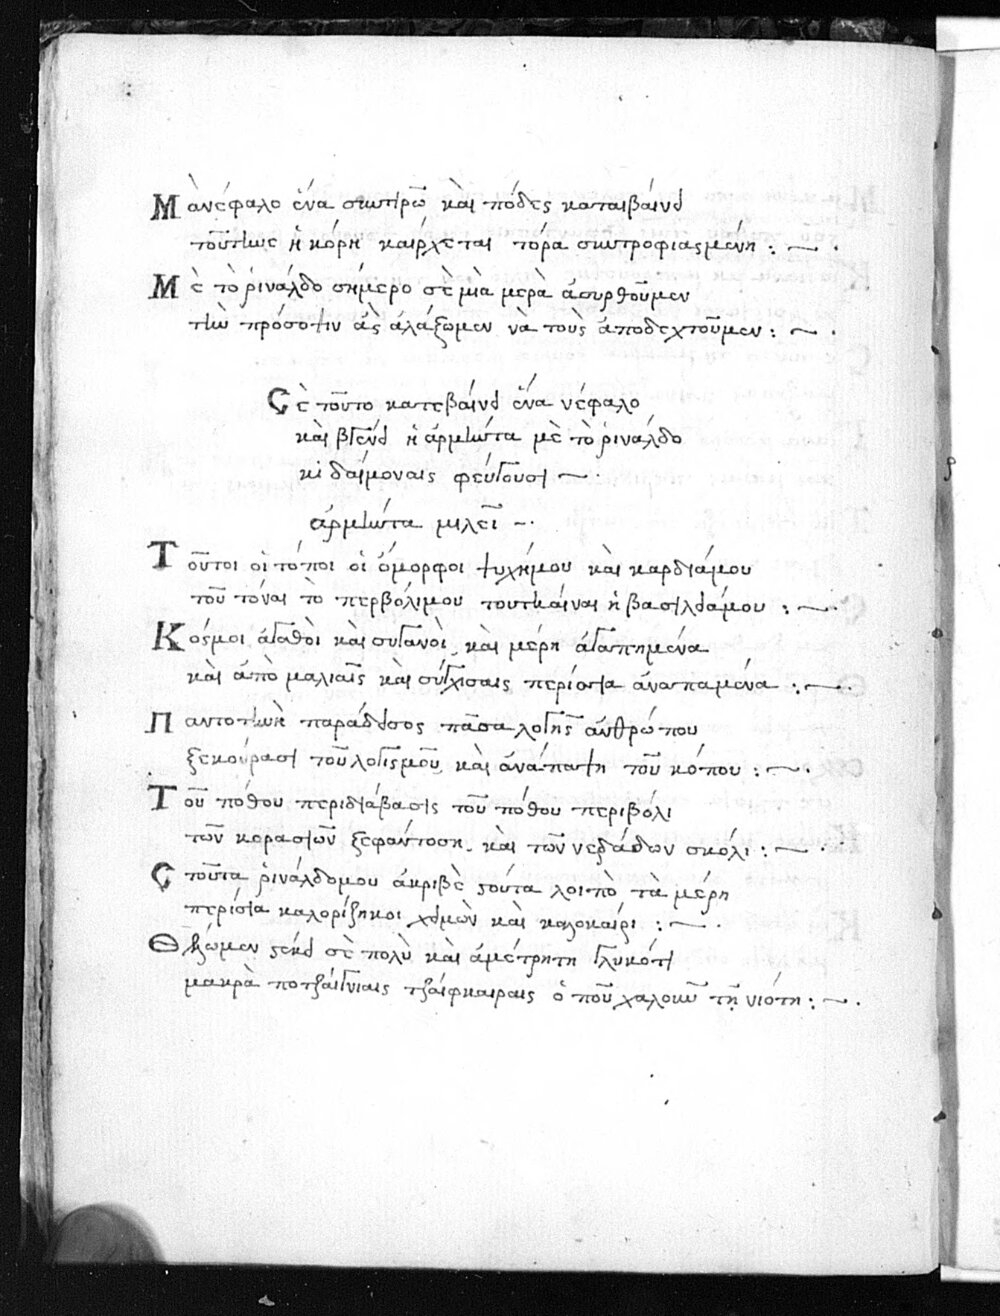 Μὰ νέφαλο ἕνα συντηρῶ κὰι πόδες καταιβαίνει
τούτηνε ἡ κόρη καιρχεται τόρα συντροφιασμένη : ~ .
Μὲ τὸ ῥινάλδο σήμερο σὲ μιὰ μερὰ ἀσυρθοῦμεν
τὴν πρόσοψιν ἀς ἀλάξωμεν νὰ τους ἀποδεχτοῦμεν : ~ .
Σὲ τοῦτο κατεβαίνει ἕνα νέφαλο
κὰι βγένει ἡ ἀρμιντα μὲ τὸ ῥινάλδο
κι δαίμοναις φεύγουσι ~
ἀρμίντα μιλεῖ ~ .
Τοῦτοι οἱ τόποι οἱ ὄμορφοι ψυχήμου κὰι καρδιάμου
τοῦ τόναι τὸ περβόλιμου τουτηναιναι ἡ βασιλειάμου : ~ .
Κόσμοι ἀγαθὸι κὰι συγανὸι, κὰι μέρη ἀγαπημένα
κὰι ἀπὸ μαλιαῖς κὰι σύγχισαις περίσσια ἀναπαμένα : ~ .
Παντοτινὴ παράδεισος πᾶσα λογῆς ἀνθρώπου
ξεκούρασι τοῦ λογισμοῦ, κὰι ἀνάπαψη τοῦ κόπου : ~ .
Τοῦ πόθου περιδιάβασις τοῦ πόθου περιβόλι
τῶν κορασιῶν ξεφάντοση, κὰι τῶν νεράιδων σκόλι : ~ .
Στοῦτα ῥινάλδομου ἀκριβὲ στοῦτα λοιπὸ τὰ μέρη
περίσια καλορίζηκοι χειμὼν κὰι καλοκαίρι : ~ .
Θέλωμεν στέκει σὲ πολὺ κὰι ἀμέτρητη γλυκότη
μακρὰ ποτζαίγνιαις τζαίφκαιραις ὁ ποῦ χαλοῦν τῆ νιότη : ~ .